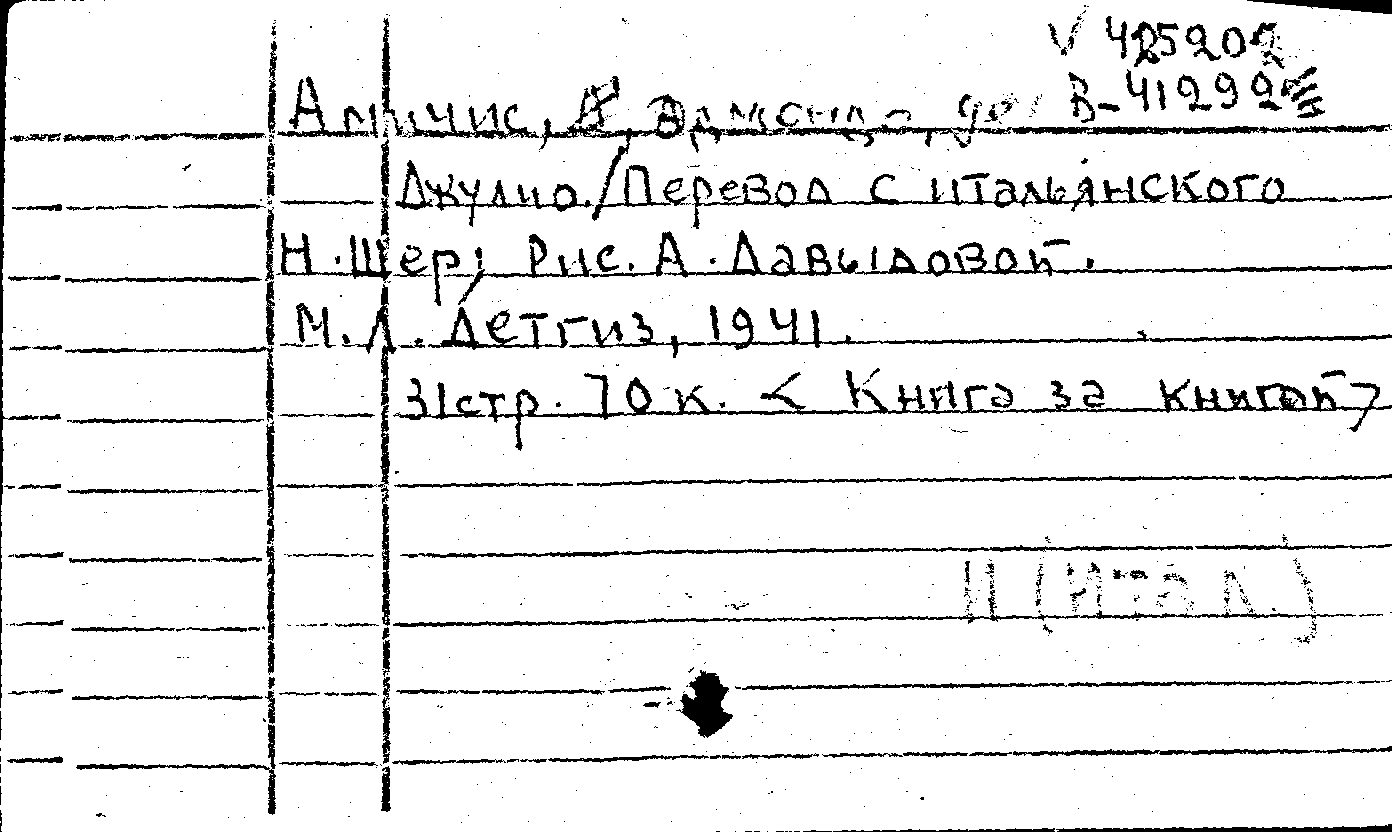 V 425202
В-41292
Амичис, Эдмондо, де
Джулио./Перевод с итальянского
Н.Шер; Рис. А. Давыдовой.
М.Л. Детгиз, 1941.
31стр. 70к. < Книга за книгой >
И (Итал.)